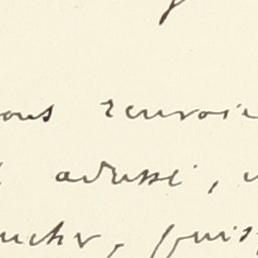 ous renvoie
adressé, 
ucher, puis